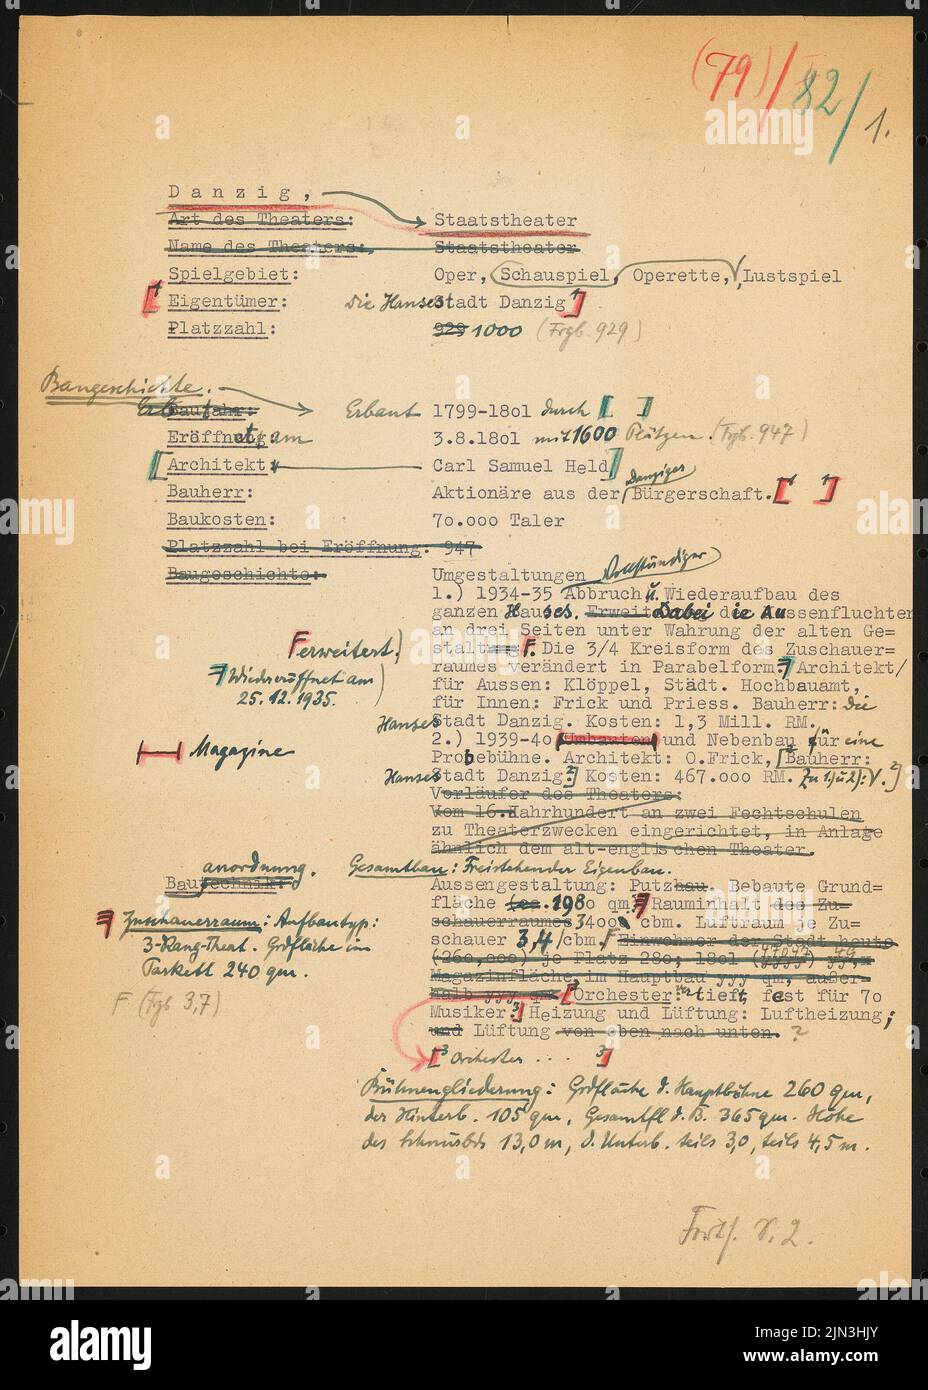 (79)/82/1.
Danzig,
Art des Theaters: Staatstheater
Name des Theaters: Staatstheater
Spielgebiet: Oper, Schauspiel, Operette, Lustspiel
Eigentümer: Die Hansestadt Danzig
Platzzahl: 929 1000 (Frgb. 929)
Baugeschichte.
Baujahr: Erbaut 1799-18o1 durch [ ]
Eröffnet am 3.8.18o1 mit 1600 Plätzen. (Frgb. 947)
Architekt: Carl Samuel Held
Danziger
Bauherr: Aktionäre aus der Bürgerschaft. [ ]
Baukosten: 7o.ooo Taler
Platzzahl bei Eröffnung. 947
Baugeschichte: Umgestaltungen Vollständiger
1.) 1934-35 Abbruch u. Wiederaufbau des
ganzen Hauses. Erweit Dabei die Aussenfluchten
an drei Seiten unter Wahrung der alten Ge=
F erweitert.) staltung. Die 3/4 Kreisform des Zuschauer=
raumes verändert in Parabelform. Architekt/
Wiedereröffnet am für Aussen: Klöppel, Städt. Hochbauamt,
25.12.1935. für Innen: Frick und Priess. Bauherr: die
Hansestadt Danzig. Kosten: 1,3 Mill. RM.
2.) 1939-4o Umbauten und Nebenbau für eine
Magazine Probebühne. Architekt: O.Frick, [Bauherr:
Hansestadt Danzig.] Kosten: 467.ooo RM. Zu 1.) u 2.): V.
Vorläufer des Theaters:
Vom 16.Jahrhundert an zwei Fechtschulen
zu Theaterzwecken eingerichtet, in Anlage
ähnlich dem alt-englischen Theater.
anordnung. Gesamtbau: Freistehender Eigenbau.
Bautechnik: Aussengestaltung: Putzbau. Bebaute Grund=
fläche 198o qm. Rauminhalt des Zu=
Zuschauerraum: Aufbautyp: schauerraumes 34oo cbm. Luftraum je Zu=
3-Rang-Theat. Grdfläche im schauer 3,4/cbm. Einwohner der Stadt heute
Parkett 240 qm. (26o,ooo) je Platz 28o; 18o1
Magazinfläche, im Hauptbau yyy qm, außer=
F (Frgb 3,7) halb yyy qm. [Orchester: tief, fest für 7o
Musiker.] Heizung und Lüftung: Luftheizung;
und Lüftung von oben nach unten. ?
[3 Orchester ... 3]
Bühnengliederung: Grdfläche d. Hauptbühne 260 qm,
der Hinterb. 105 qm, Gesamtfl d. B. 365 qm. Höhe
des Schnürbds 13,0 m, d. Unterb. teils 3,0, teils 4,5 m.
Forts. S. 2.
alamy
Image ID: 2JN3HJY
www.alamy.com